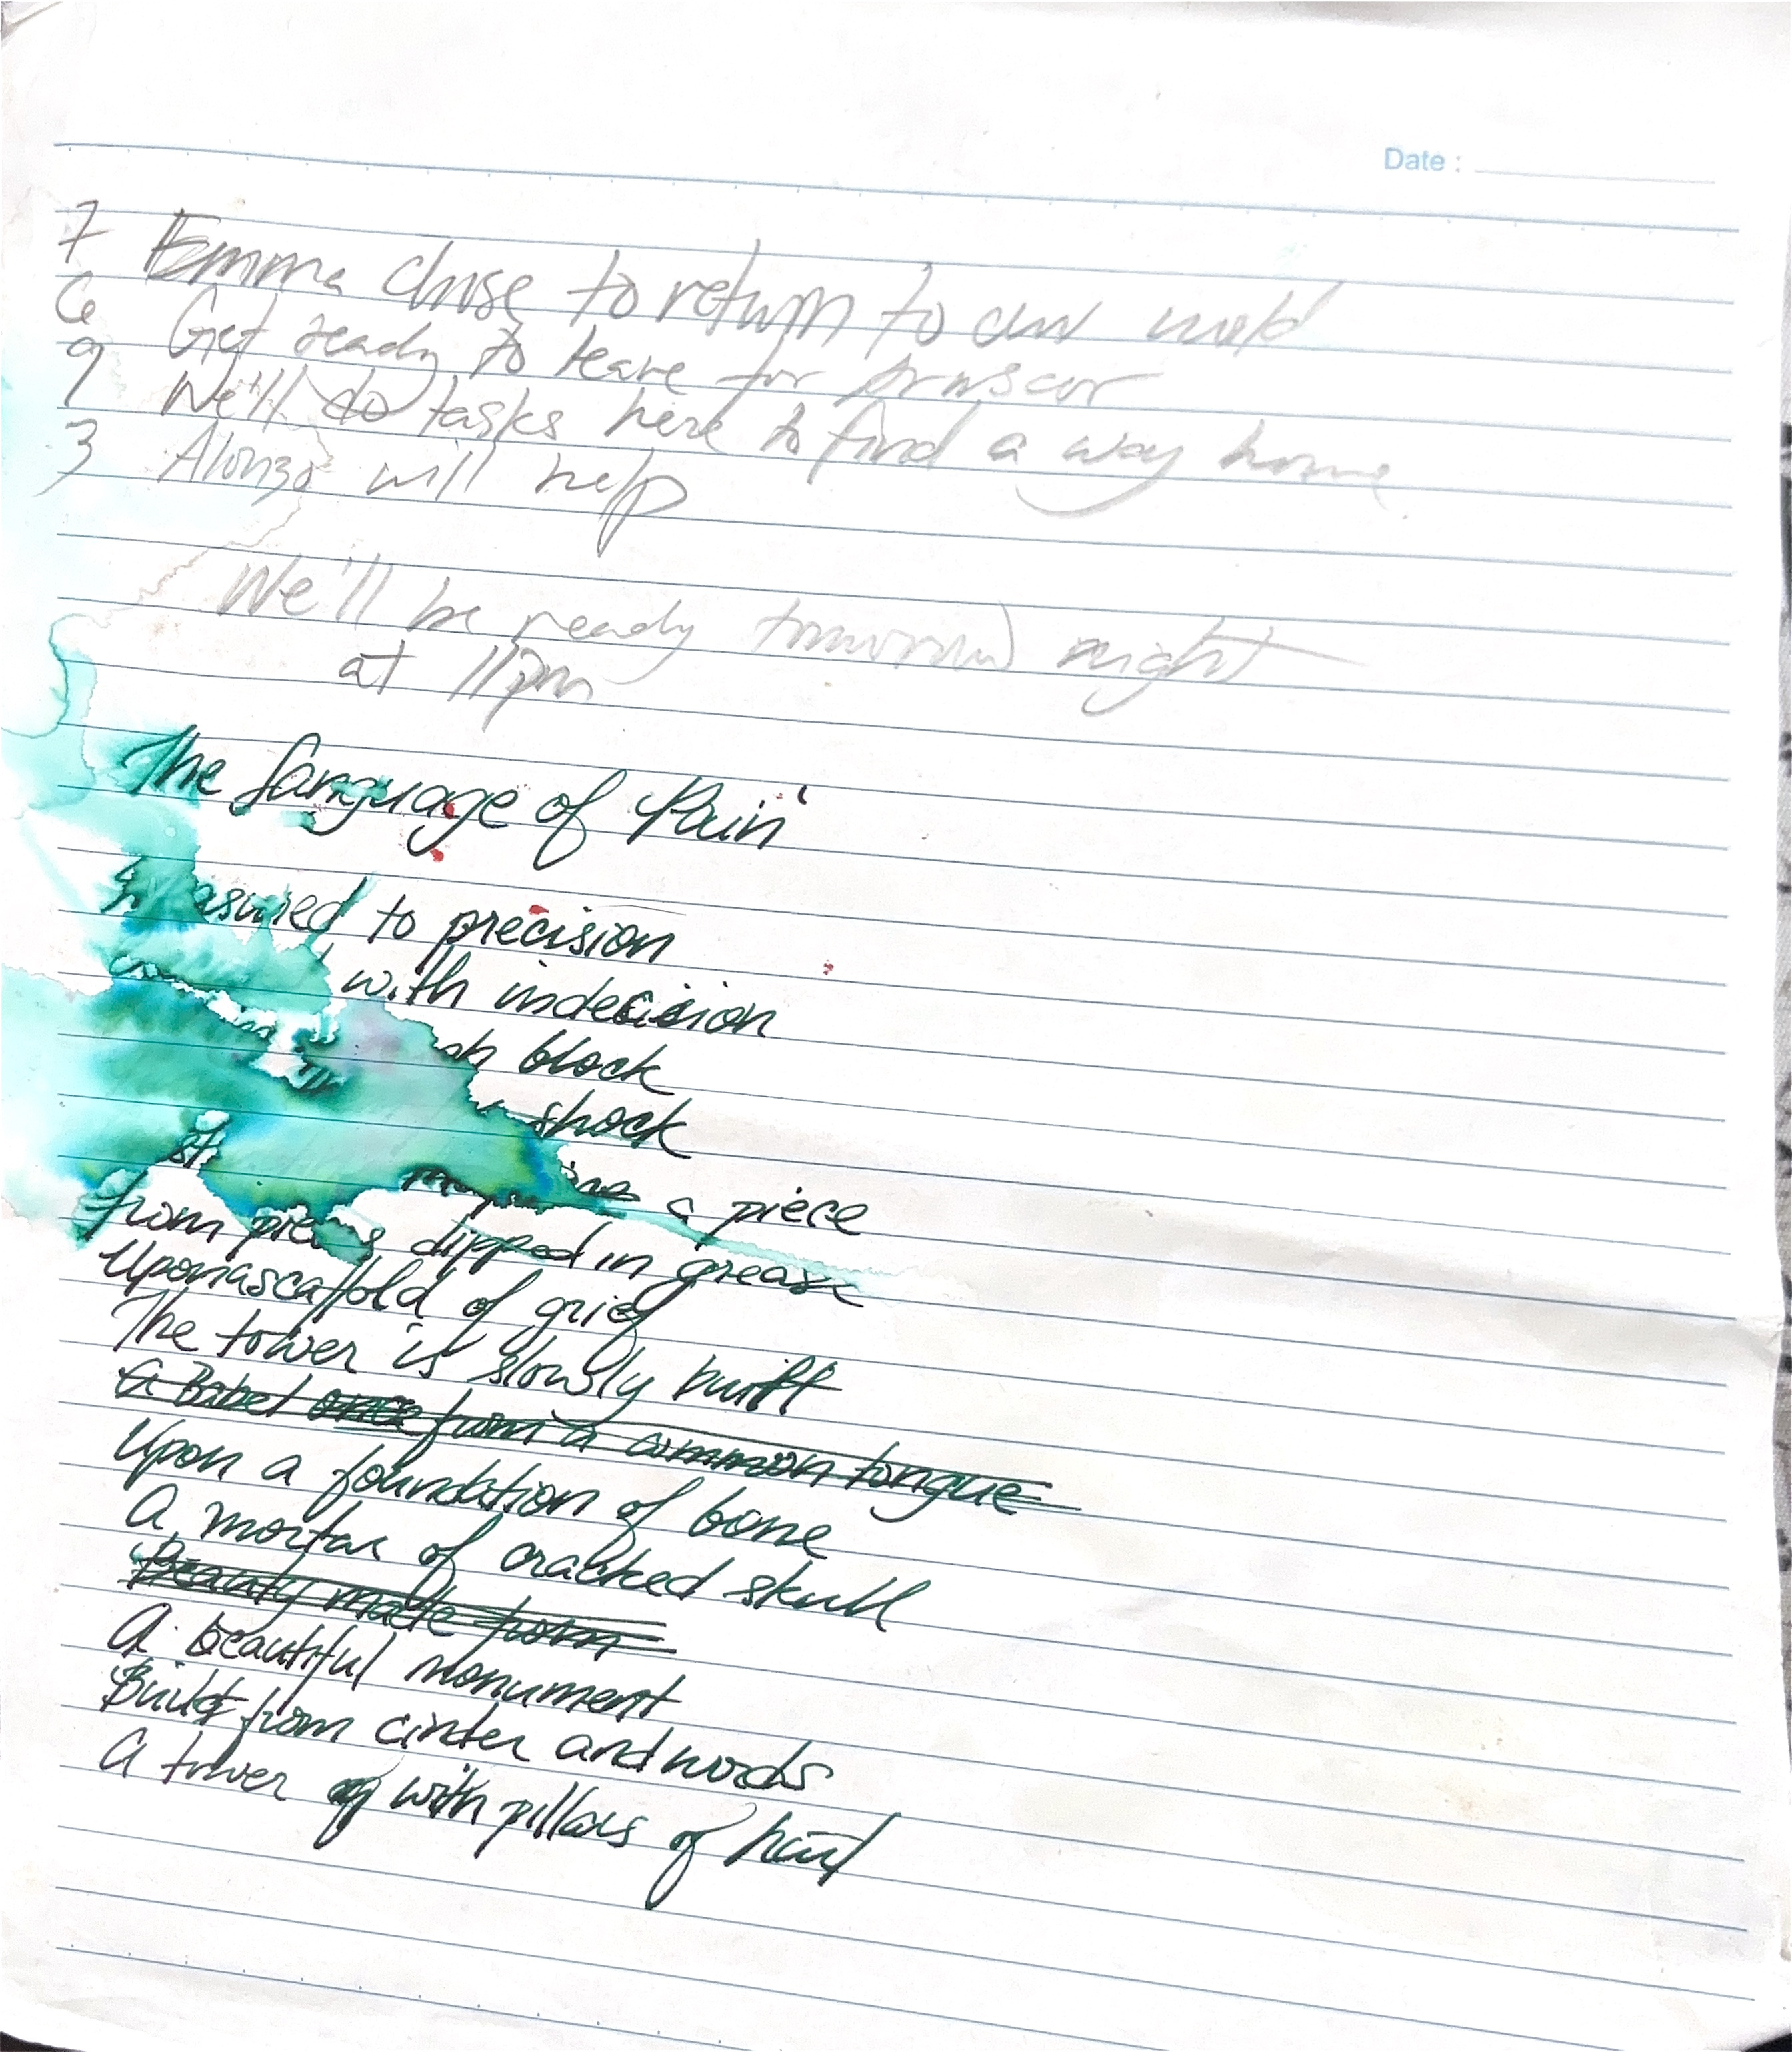 Date :
7 Emma chose to return to our world
6 Get ready to leave for
9 We'll do tasks here to find a way home
3 Alonzo will help
We'll be ready tomorrow night
at 11pm
The Language of Pain
to precision
with indecision
block
shock
a piece
from pieces dipped in grease
Upon a scaffold of grief
The tower is slowly built
A Babel once from a common tongue
Upon a foundation of bone
A mortar of cracked skull
Beauty made from
A beautiful monument
Built from cinder and words
A tower with pillars of hurt